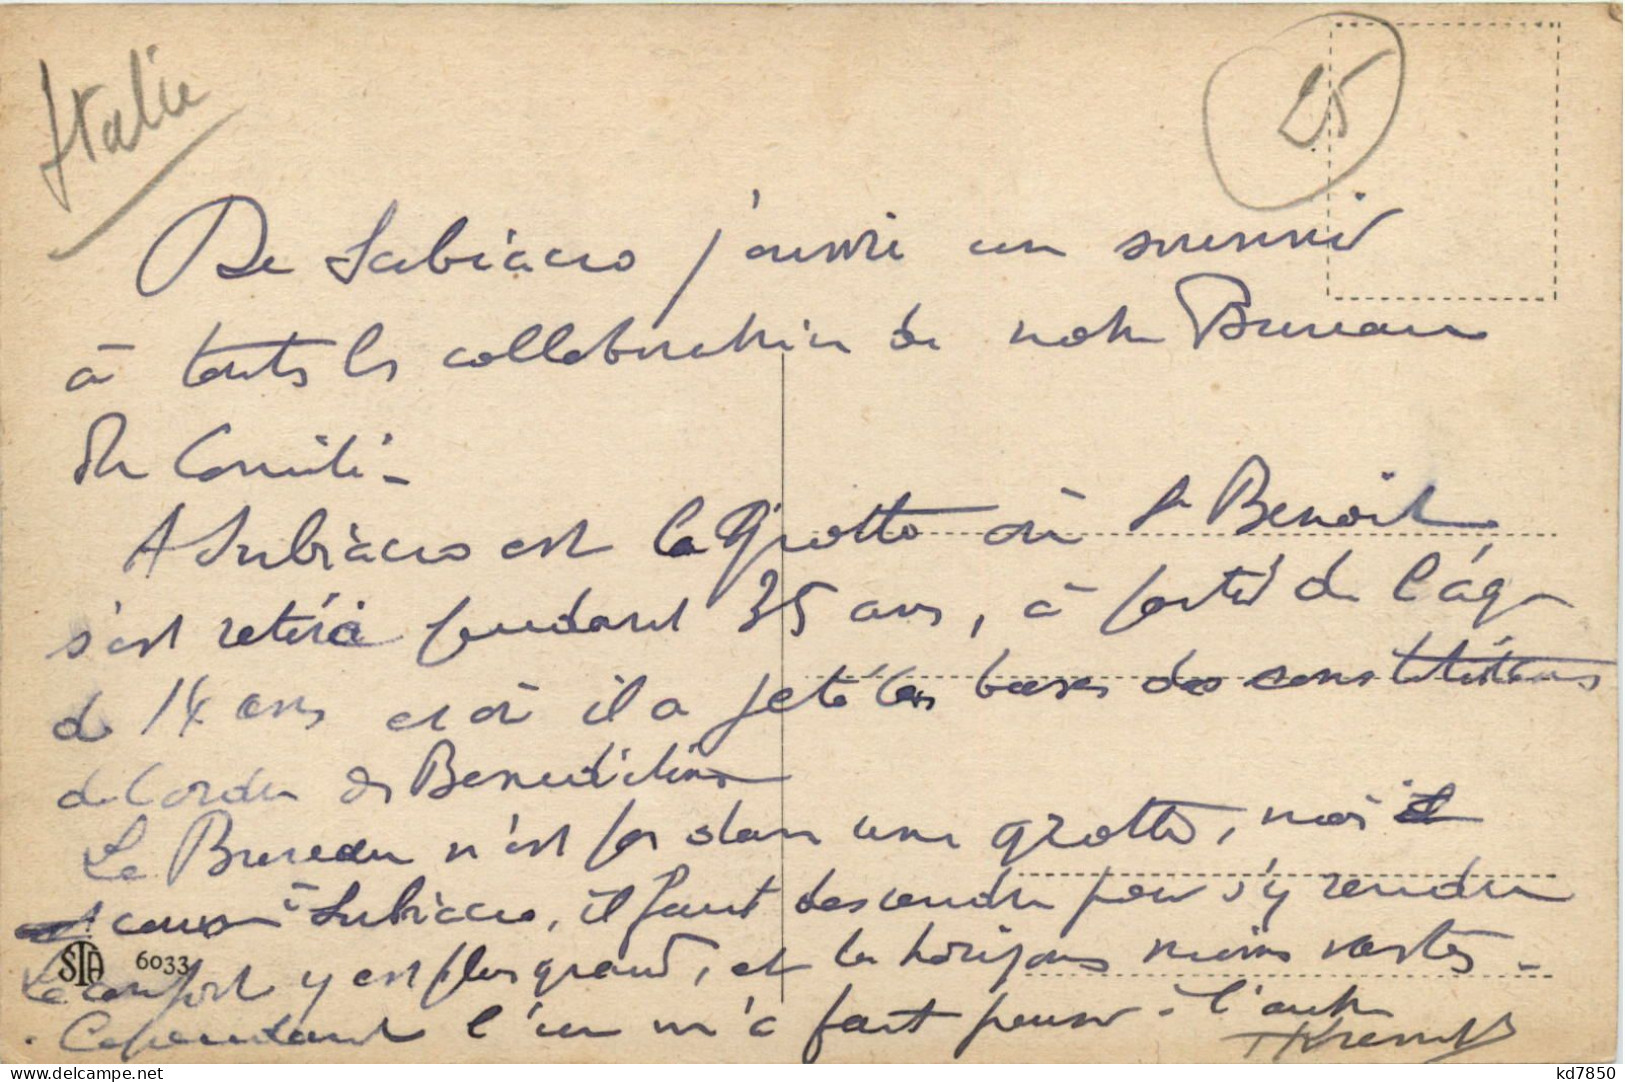 Italie
25
De Subiaco j'envoie un souvenir
à toutes les collaboratrices de notre Bureau
du Comité -
A Subiaco est la Grotte où St Benoit
s'est retiré pendant 35 ans, à partir de l'âge
de 14 ans et où il a jeté les bases des constitutions
de l'ordre des Benedictins
Le Bureau n'est pas dans une grotte, mais
comme à Subiaco, il faut descendre pour s'y rendre
Le confort y est plus grand, et les horizons moins vastes -
. Cependant l'un m'a fait penser à l'autre
STA 6033
kd7850